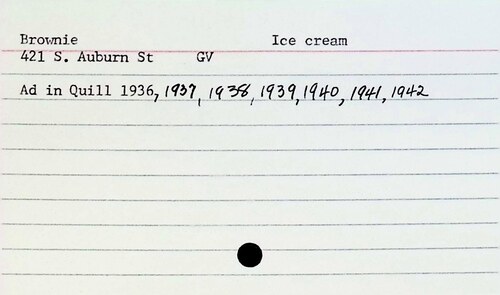 Brownie Ice cream
421 S. Auburn St GV
Ad in Quill 1936, 1937, 1938, 1939, 1940, 1941, 1942